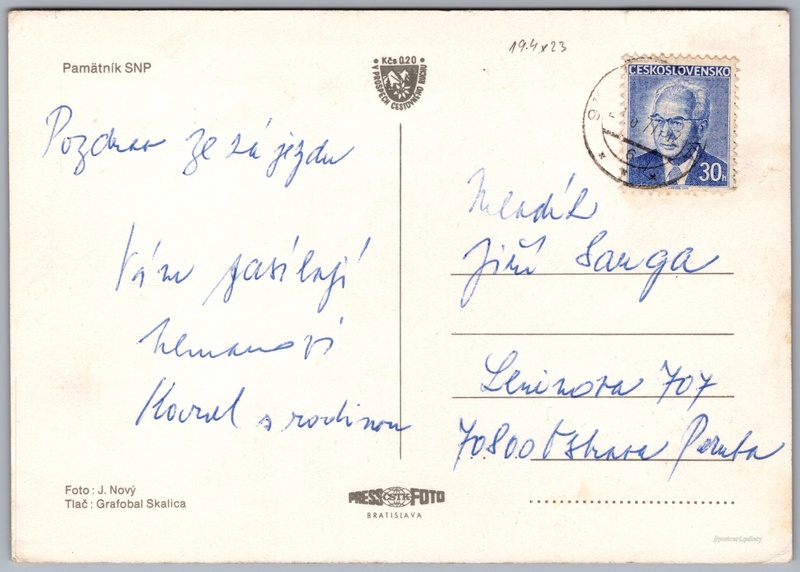 Pamätník SNP
Kčs 0.20
V PROSPECH CESTOVNÉHO RUCHU
19.4 x 23
ČESKOSLOVENSKO
30h
Pozdrav ze zájezdu
Vám zasílají
Mladík
Jiří Sarga
Kovral s rodinou
Leninova 707
70800 Ostrava Poruba
Foto: J. Nový
Tlač: Grafobal Skalica
PRESS ČSTK FOTO
BRATISLAVA